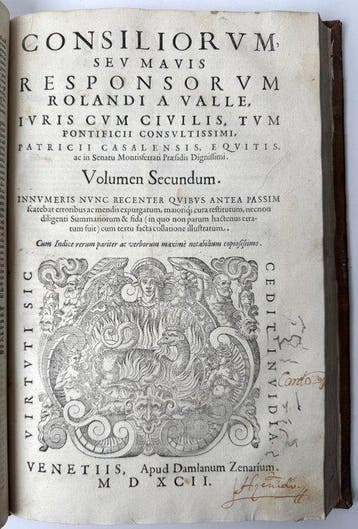 CONSILIORVM,
SEV MAVIS
RESPONSORVM
ROLANDI A VALLE,
IVRIS CVM CIVILIS, TVM
PONTIFICII CONSVLTISSIMI,
PATRICII CASALENSIS, EQVITIS,
ac in Senatu Montisferrati Præsidis Dignissimi.
Volumen Secundum.
INNVMERIS NVNC RECENTER QVIBVS ANTEA PASSIM
scatebat erroribus ac mendis expurgatum, maioriq; cura restitutum, necnon
diligenti Summariorum & fida (in quo non parum hactenus erra-
tum fuit) cum textu facta collatione illustratum.
Cum Indice rerum pariter ac verborum maximè notabilium copiosissimo.
VIRTVTI SIC
CEDIT INVIDIA
VENETIIS, Apud Damianum Zenarium.
M D XCII.